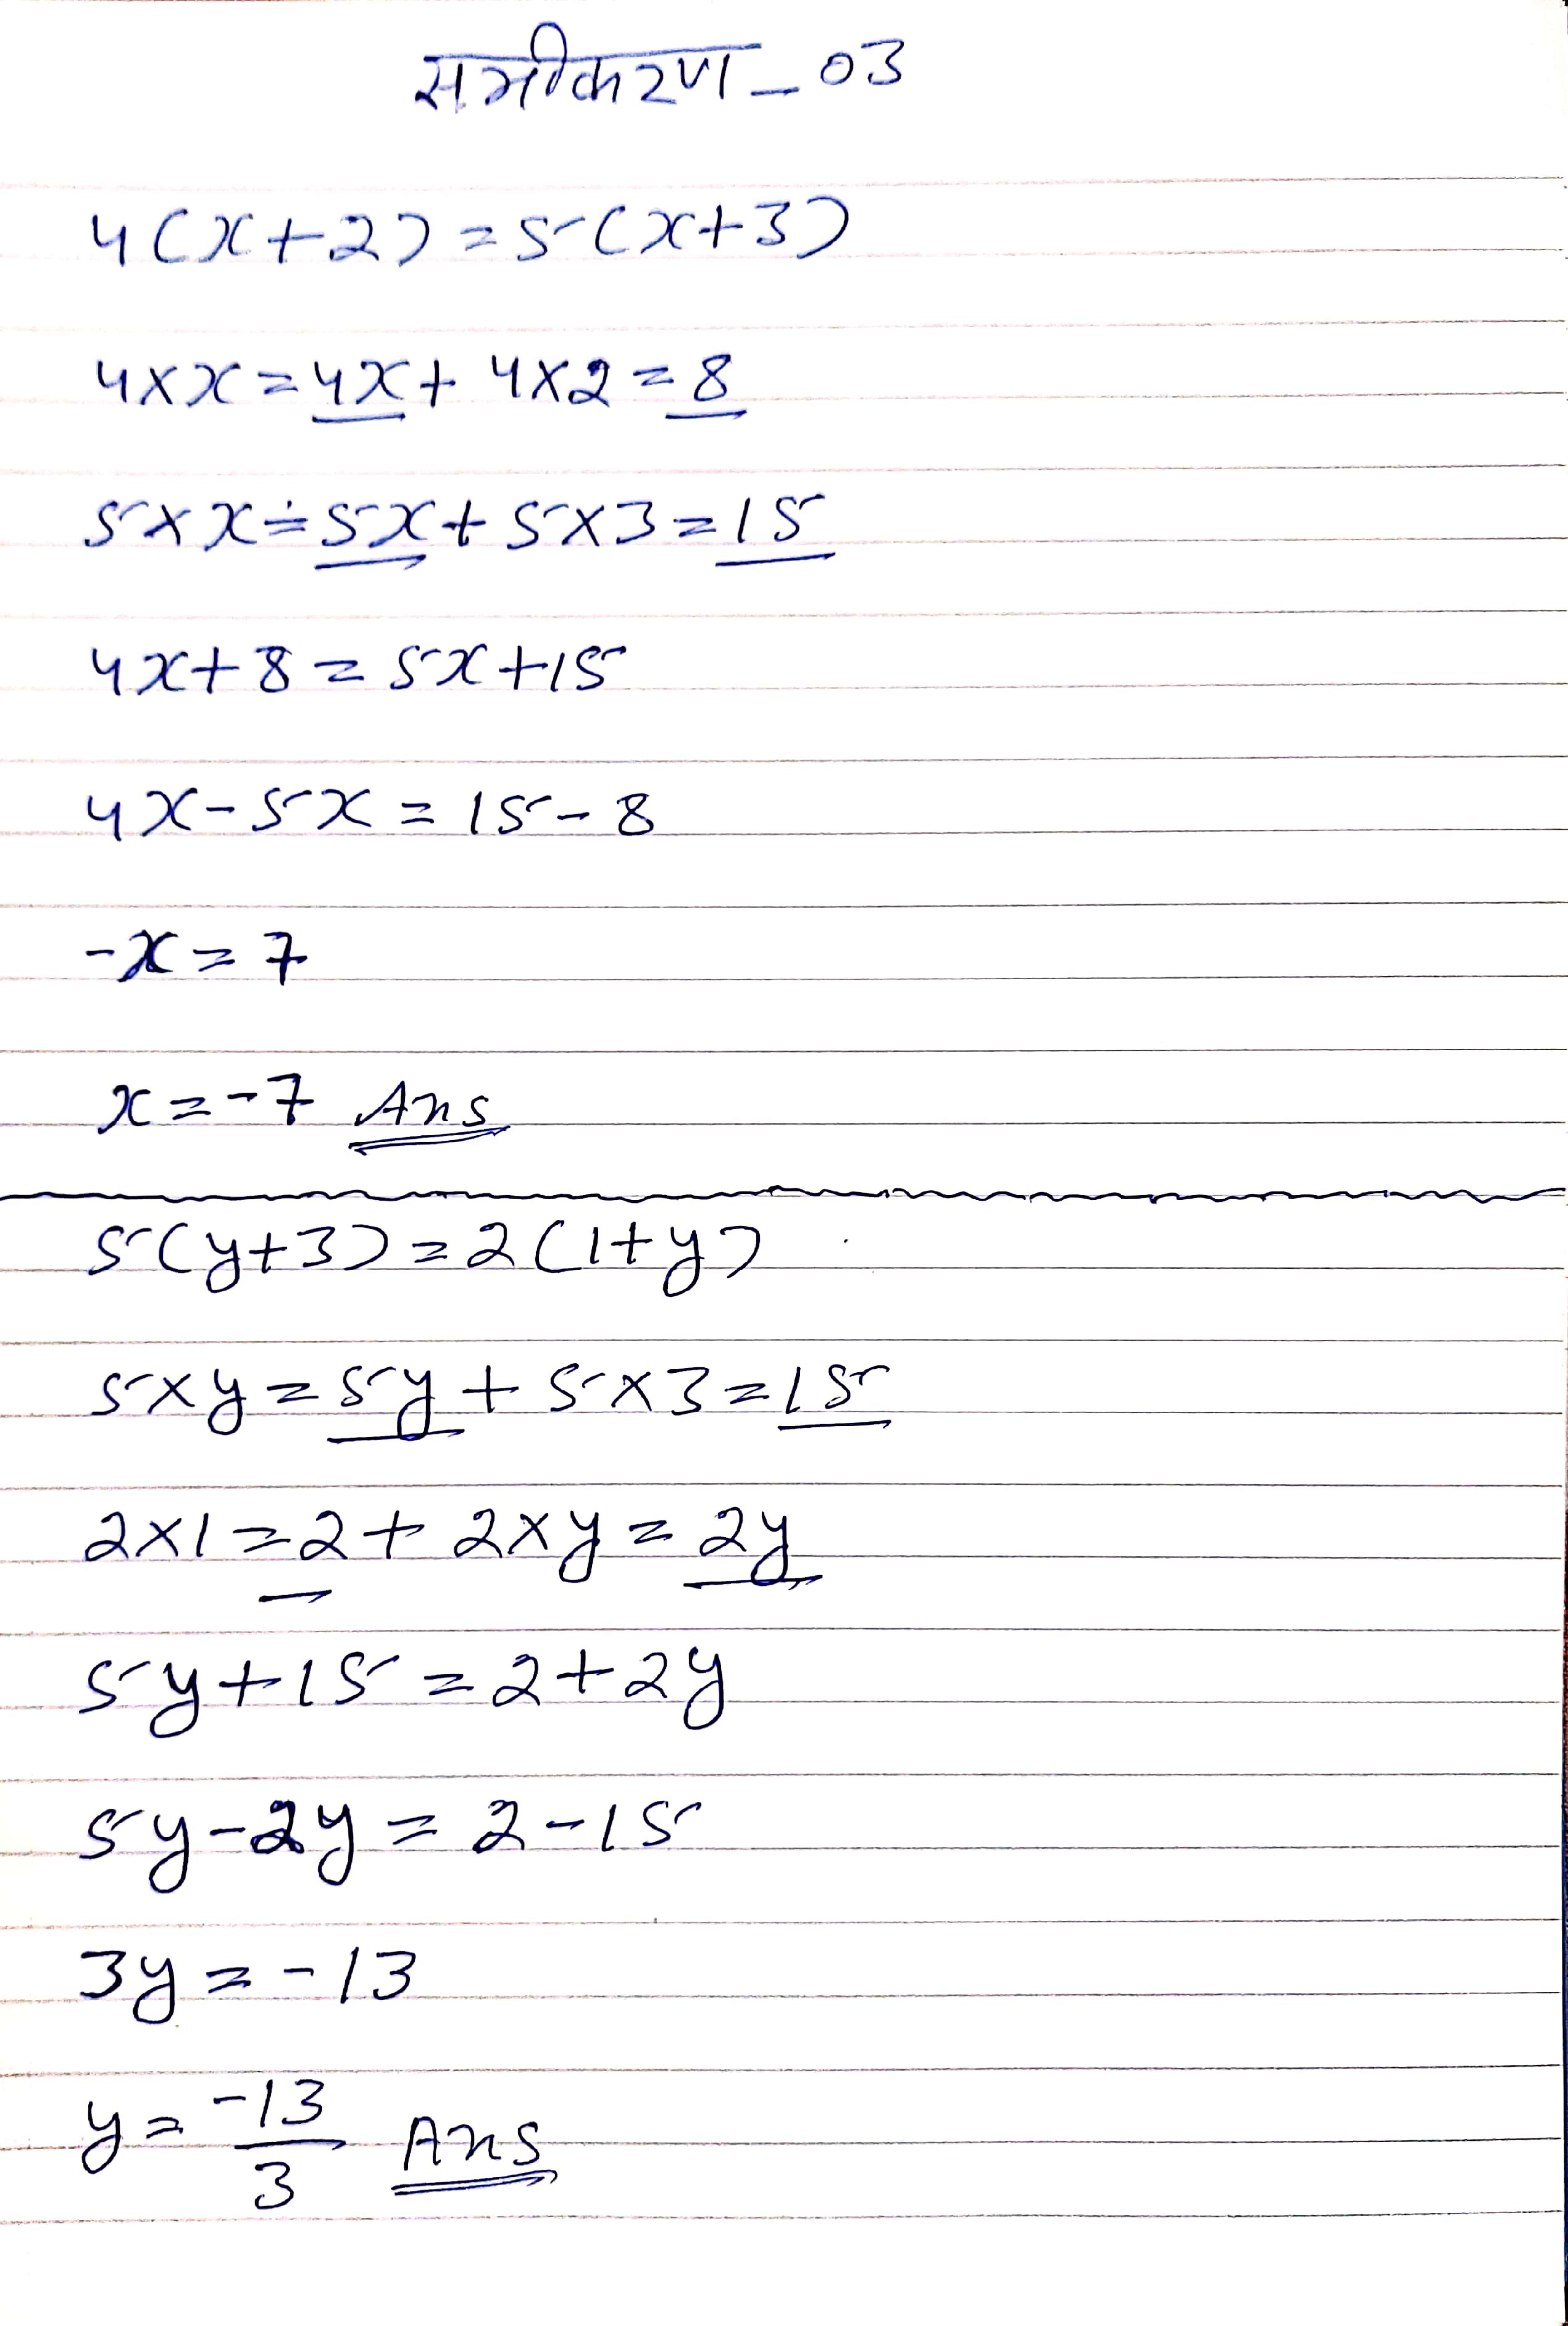 समीकरण - 03
4(x+2) = 5(x+3)
4×x = 4x + 4×2 = 8
5×x = 5x + 5×3 = 15
4x+8 = 5x+15
4x-5x = 15-8
-x = 7
x = -7 Ans
5(y+3) = 2(1+y)
5×y = 5y + 5×3 = 15
2×1 = 2 + 2×y = 2y
5y+15 = 2+2y
5y-2y = 2-15
3y = -13
y = -13/3 Ans